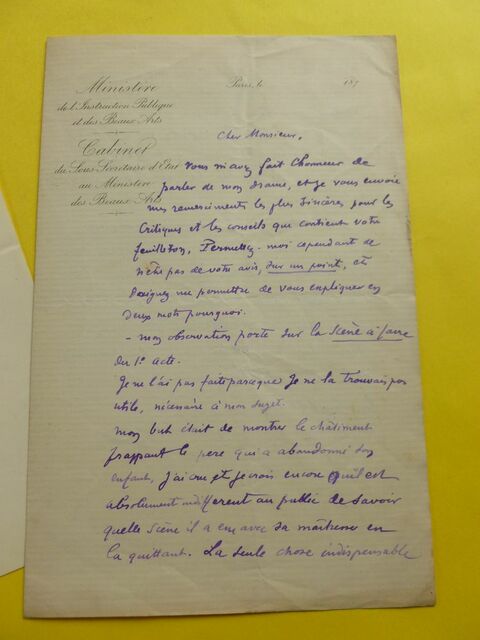 Ministère
de l'Instruction Publique
et des Beaux Arts
Cabinet
du Sous-Secrétaire d'Etat
au Ministère
des Beaux Arts
Paris, le 187
Cher Monsieur,
vous m'avez fait l'honneur de
parler de mon drame, et je vous envoie
mes remerciments les plus sincères pour les
critiques et les conseils que contient votre
feuilleton. Permettez-moi cependant de
n'être pas de votre avis, sur un point, et
daignez me permettre de vous expliquer en
deux mots pourquoi.
- mon observation porte sur la scène à faire
du 1er acte.
Je ne l'ai pas faite parceque je ne la trouvais pas
utile, nécessaire à mon sujet.
mon but était de montrer le châtiment
frappant le père qui a abandonné son
enfant, j'ai cru et je crois encore qu'il est
absolument indifférent au public de savoir
quelle scène il a eue avec sa maîtresse en
la quittant. La seule chose indispensable